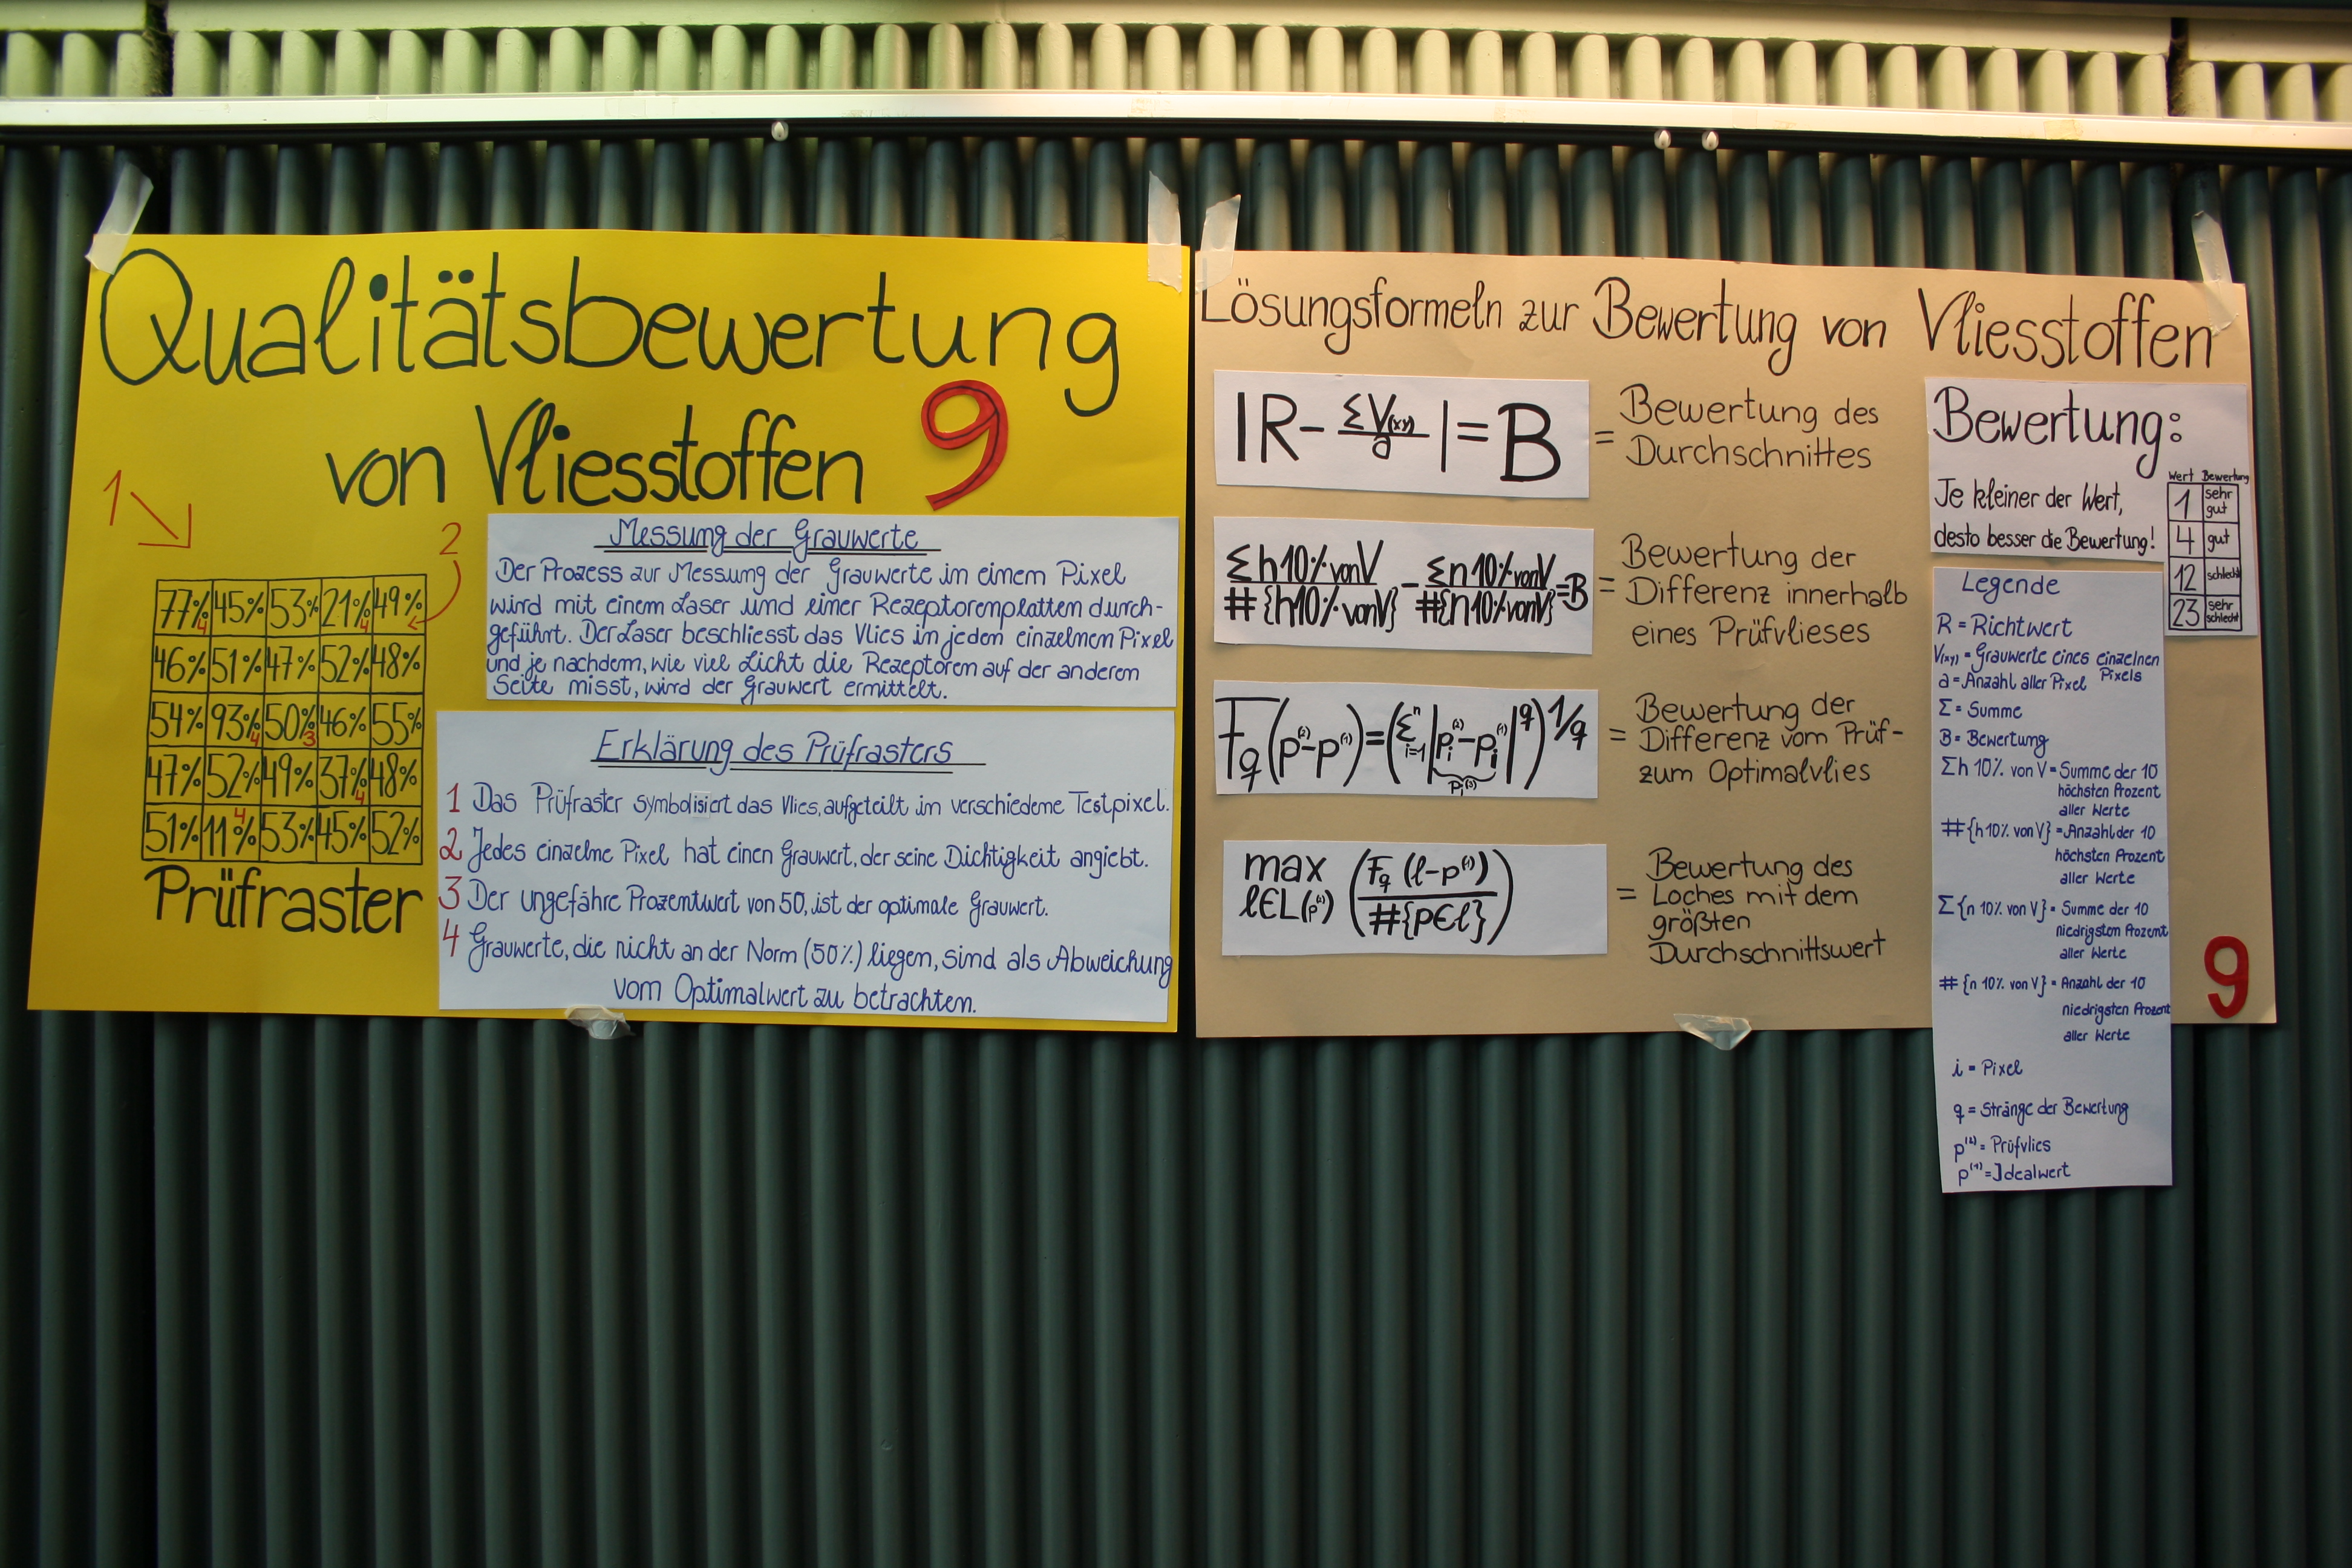 Qualitätsbewertung
von Vliesstoffen 9
1
2
77% 45% 53% 21% 49%
4 4
46% 51% 47% 52% 48%
54% 93% 50% 46% 55%
4 3
47% 52% 49% 37% 48%
4
51% 11% 53% 45% 52%
4
Prüfraster
Messung der Grauwerte
Der Prozess zur Messung der Grauwerte in einem Pixel
wird mit einem Laser und einer Rezeptorenplatten durch-
geführt. Der Laser beschliesst das Vlies in jedem einzelnen Pixel
und je nachdem, wie viel Licht die Rezeptoren auf der anderen
Seite misst, wird der Grauwert ermittelt.
Erklärung des Prüfrasters
1 Das Prüfraster symbolisiert das Vlies, aufgeteilt in verschiedene Testpixel.
2 Jedes einzelne Pixel hat einen Grauwert, der seine Dichtigkeit angiebt.
3 Der ungefähre Prozentwert von 50, ist der optimale Grauwert.
4 Grauwerte, die nicht an der Norm (50%) liegen, sind als Abweichung
vom Optimalwert zu betrachten.
Lösungsformeln zur Bewertung von Vliesstoffen
|R - ΣV(xy)/a| = B
= Bewertung des
Durchschnittes
Σh10% von V / #{h10% von V} - Σn10% von V / #{n10% von V} = B
= Bewertung der
Differenz innerhalb
eines Prüfvlieses
Fq(p⁽²⁾-p⁽¹⁾) = (Σⁿᵢ₌₁ |pᵢ⁽²⁾-pᵢ⁽¹⁾|^q)^1/q
pᵢ⁽³⁾
= Bewertung der
Differenz vom Prüf-
zum Optimalvlies
max l∈L(p⁽²⁾) (Fq (l-p⁽¹⁾) / #{p∈l})
= Bewertung des
Loches mit dem
größten
Durchschnittswert
Bewertung:
Je kleiner der Wert,
desto besser die Bewertung!
Wert Bewertung
1 sehr gut
4 gut
12 schlecht
23 sehr schlecht
Legende
R = Richtwert
V(xy) = Grauwerte eines einzelnen
Pixels
a = Anzahl aller Pixel
Σ = Summe
B = Bewertung
Σh 10% von V = Summe der 10
höchsten Prozent
aller Werte
#{h 10% von V} = Anzahl der 10
höchsten Prozent
aller Werte
Σ{n 10% von V} = Summe der 10
niedrigsten Prozent
aller Werte
#{n 10% von V} = Anzahl der 10
niedrigsten Prozent
aller Werte
i = Pixel
q = Stränge der Bewertung
p⁽²⁾ = Prüfvlies
p⁽¹⁾ = Idealwert
9